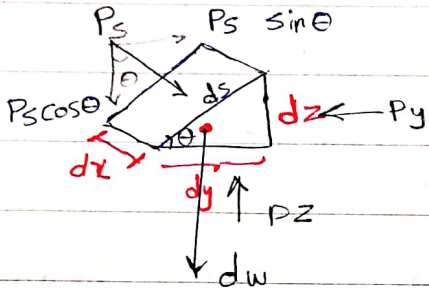 Ps Ps sinθ
θ
Ps cosθ ds dz Py
θ
dx
dy
PZ
dw